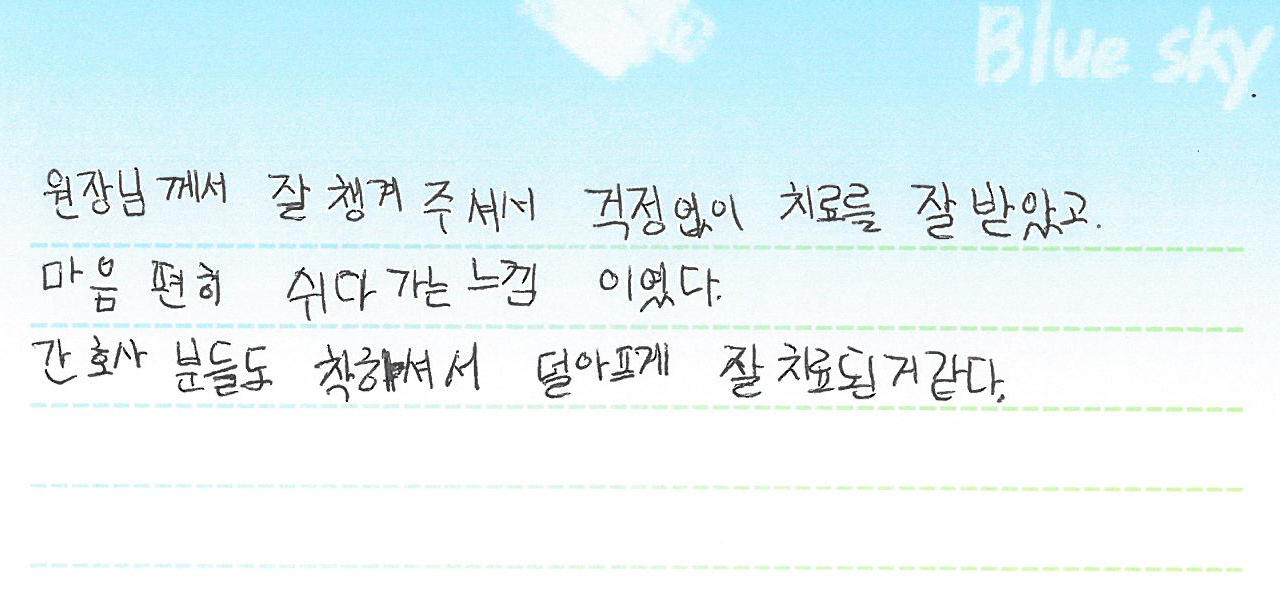 Blue sky
원장님께서 잘 챙겨 주셔서 걱정없이 치료를 잘 받았고.
마음 편히 쉬다 가는 느낌 이였다.
간호사 분들도 착하셔서 덜아프게 잘 치료된거같다.